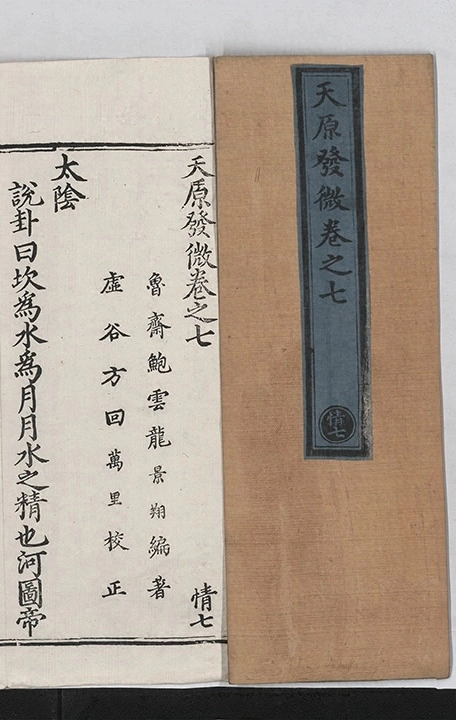 天原發微卷之七
情七
天原發微卷之七 情七
魯齋鮑雲龍景翔編著
虛谷方回萬里校正
太陰
說卦曰坎為水為月月水之精也河圖帝